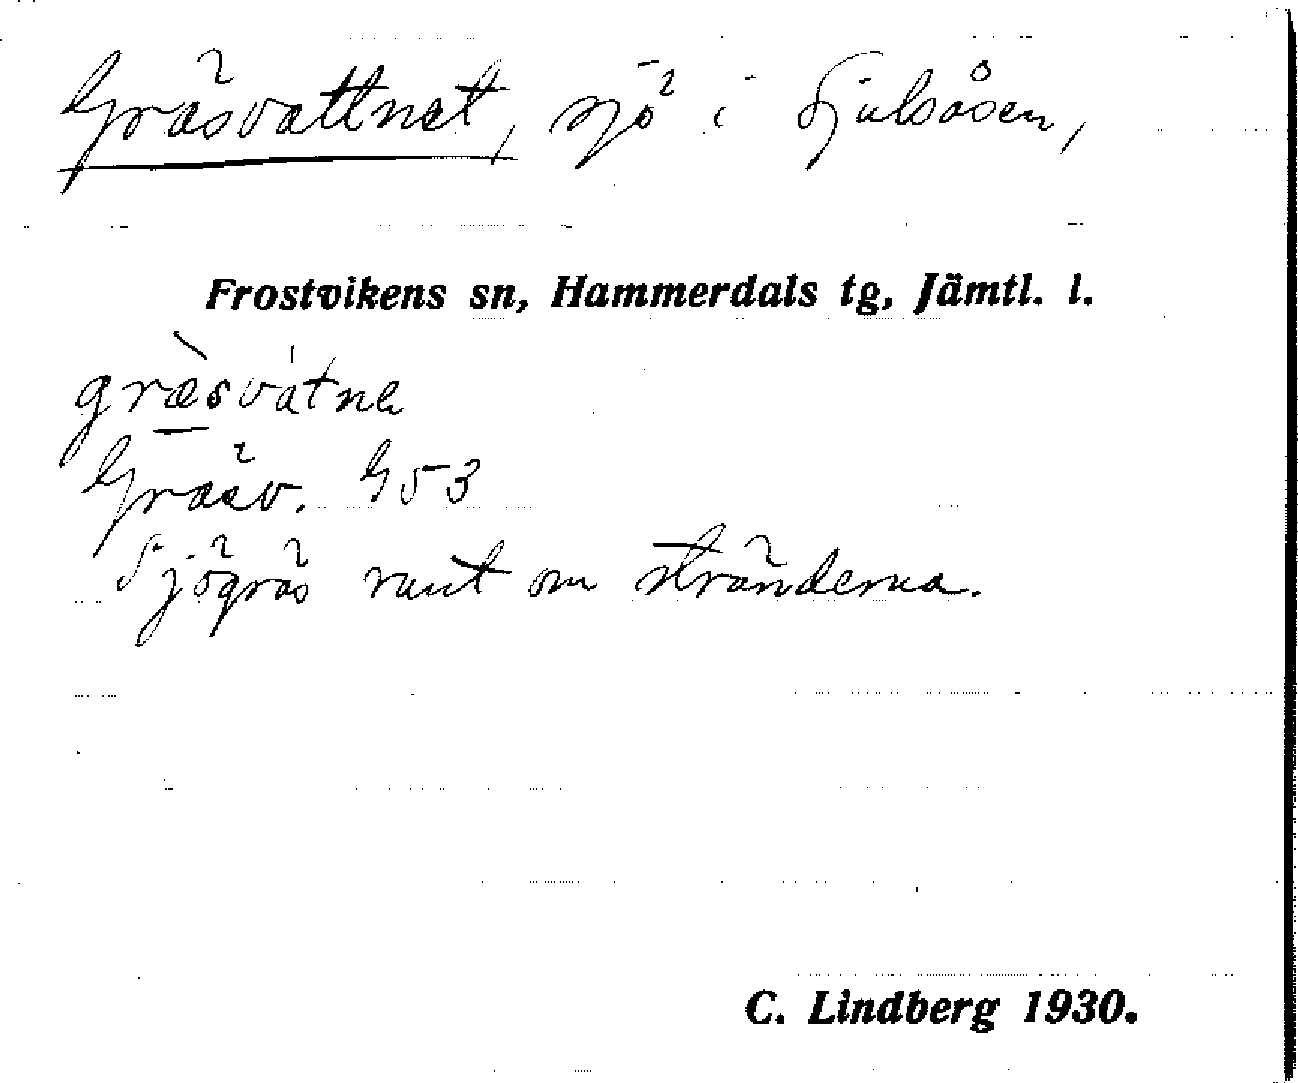 Gräsvattnet, sjö i Sjulsåsen,
Frostvikens sn, Hammerdals tg, Jämtl. l.
græ̀svátnə
Gräsv. G53
Sjögräs runt om stränderna.
C. Lindberg 1930.